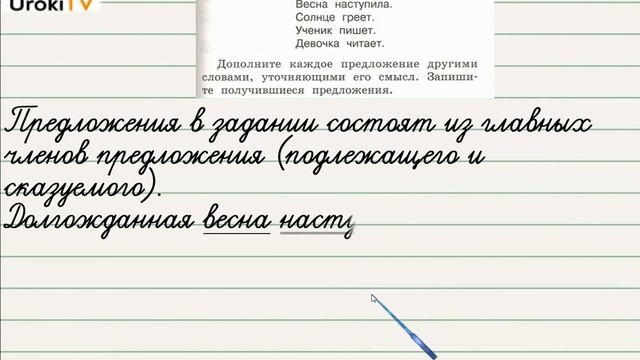 UrokiTV
Весна наступила.
Солнце греет.
Ученик пишет.
Девочка читает.
Дополните каждое предложение другими
словами, уточняющими его смысл. Запиши-
те получившиеся предложения.
Предложения в задании состоят из главных
членов предложения (подлежащего и
сказуемого).
Долгожданная весна насту